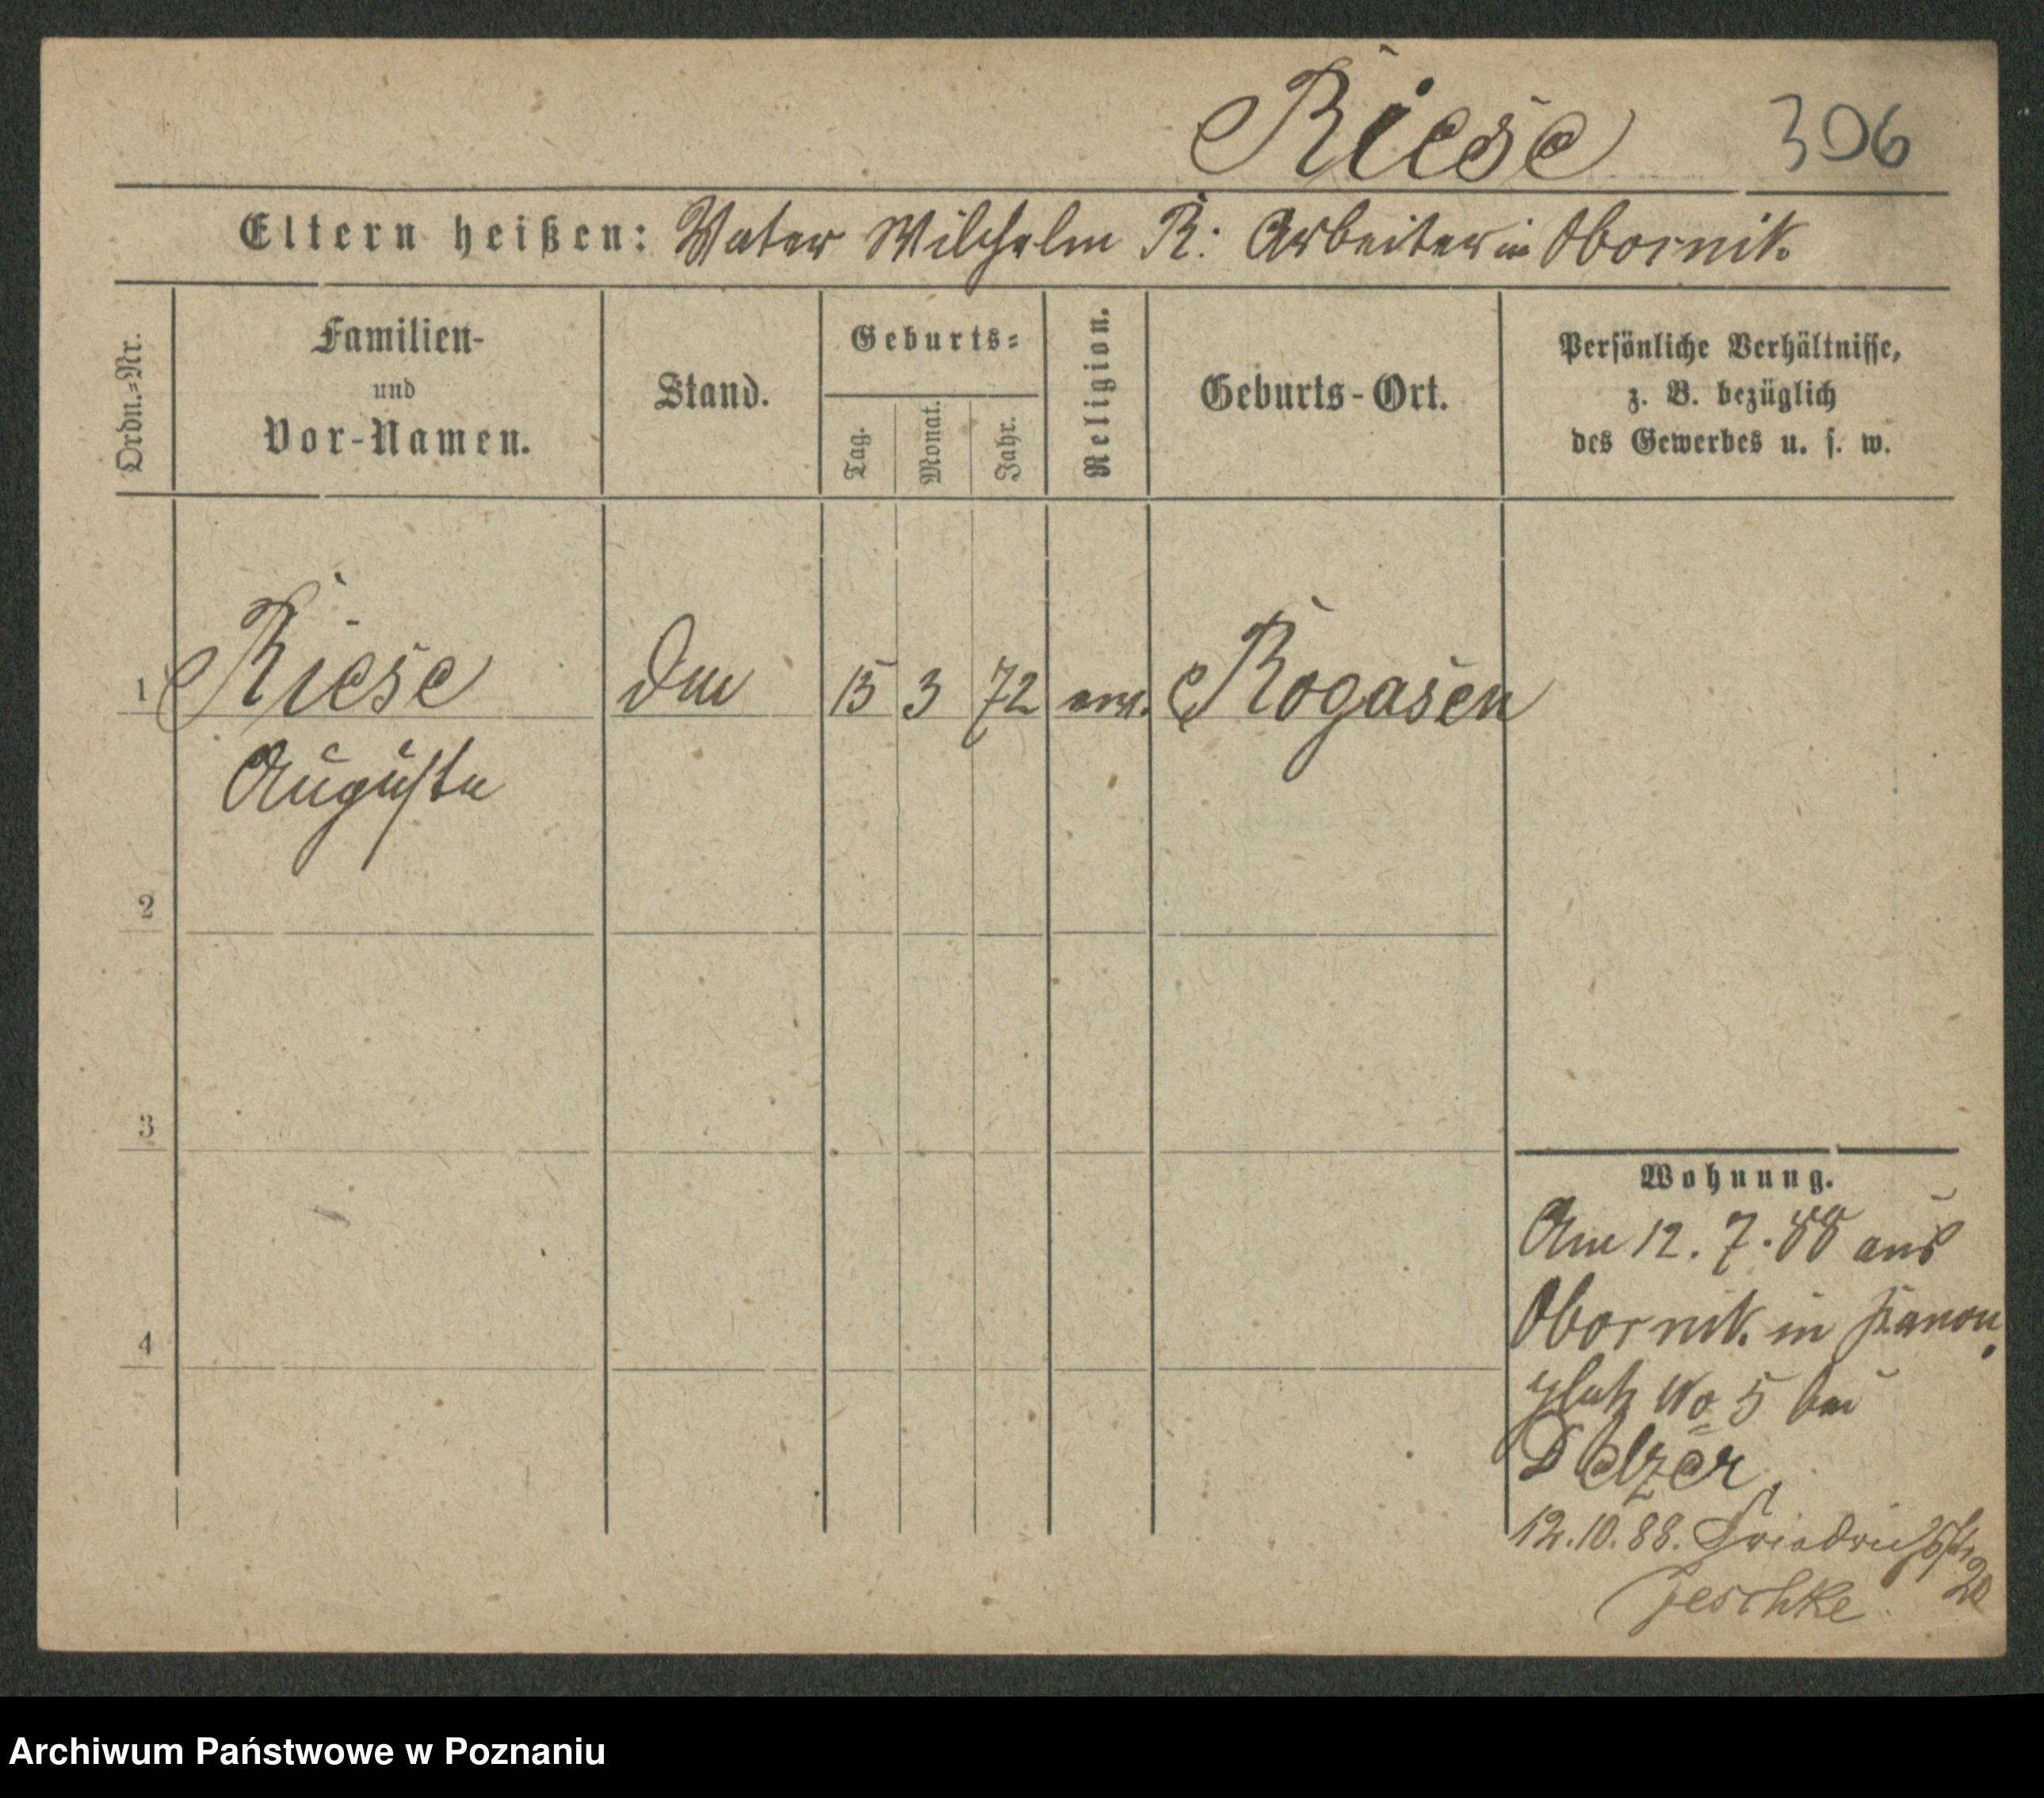 Riese 306
Eltern heißen: Vater Wilhelm R. Arbeiter in Obornik.
Ordn.=Nr.
Familien-
und
Vor-Namen.
Stand.
Geburts=
Tag.
Monat.
Jahr.
Religion.
Geburts-Ort.
Persönliche Verhältnisse,
z. B. bezüglich
des Gewerbes u. s. w.
1 Riese 15 3 72 Rogasen
Auguste
2
3
4
Wohnung.
Am 12. 7. 88 aus
Obornik in Kanon
platz No 5 bei
Delzer,
12.10.88. Friedrichstr
20
Jeschke
Archiwum Państwowe w Poznaniu